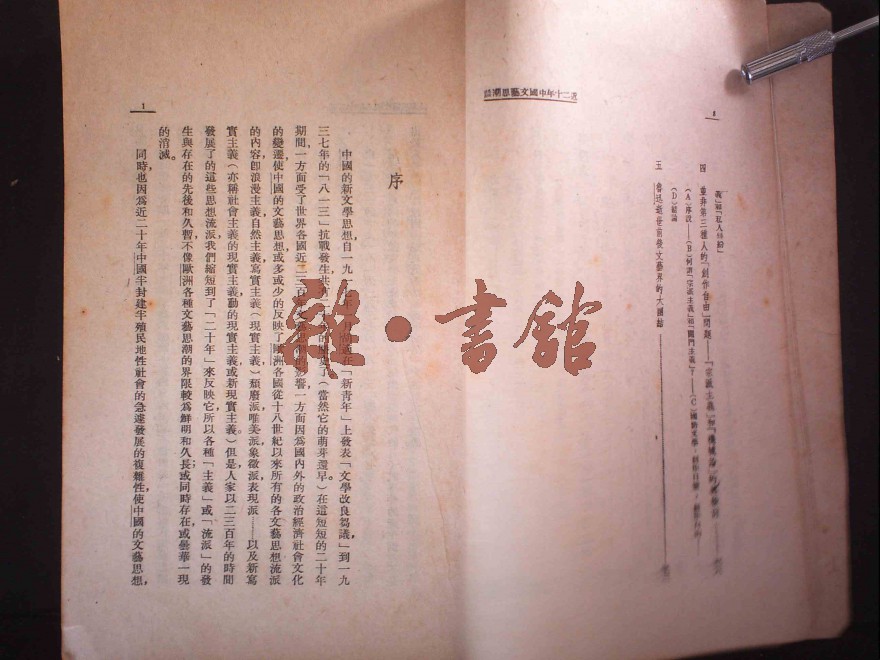 近二十年中國文藝思潮論
義」和「私人時
四 重非第三種人的「創作自由」問題——「宗派主義」和「機械論」的
(A)序說——(B)何謂「宗派主義」和「關門主義」?——(C)國防文學,創作自由,
(D)結論
五 魯迅逝世前後文藝界的大團結
序
中國的新文學思想,自一九一七 月胡適在「新青年」上發表「文學改良芻議」到一九
三七年的「八一三」抗戰發生,共有二 了(當然它的萌芽還早。)在這短短的二十年
期間,一方面受了世界各國近二三百 影響,一方面因爲國內外的政治經濟社會文化
的變遷,使中國的文藝思想,或多或少的反映了歐洲各國從十八世紀以來所有的各文藝思想流派
的內容,卽浪漫主義,自然主義,寫實主義(現實主義,)頹廢派,唯美派,象徵派,表現派……以及新寫
實主義(亦稱社會主義的現實主義,動的現實主義或新現實主義。)但是,人家以二三百年的時間
發展了的這些思想流派,我們縮短到了「二十年」來反映它,所以各種「主義」或「流派」的發
生與存在的先後和久暫不像歐洲各種文藝思潮的界限較爲鮮明和久長;或同時存在,或曇華一現
的消滅。
同時,也因爲近二十年中國半封建半殖民地性社會的急遽發展的複雜性,使中國的文藝思想,
1
雜·書館